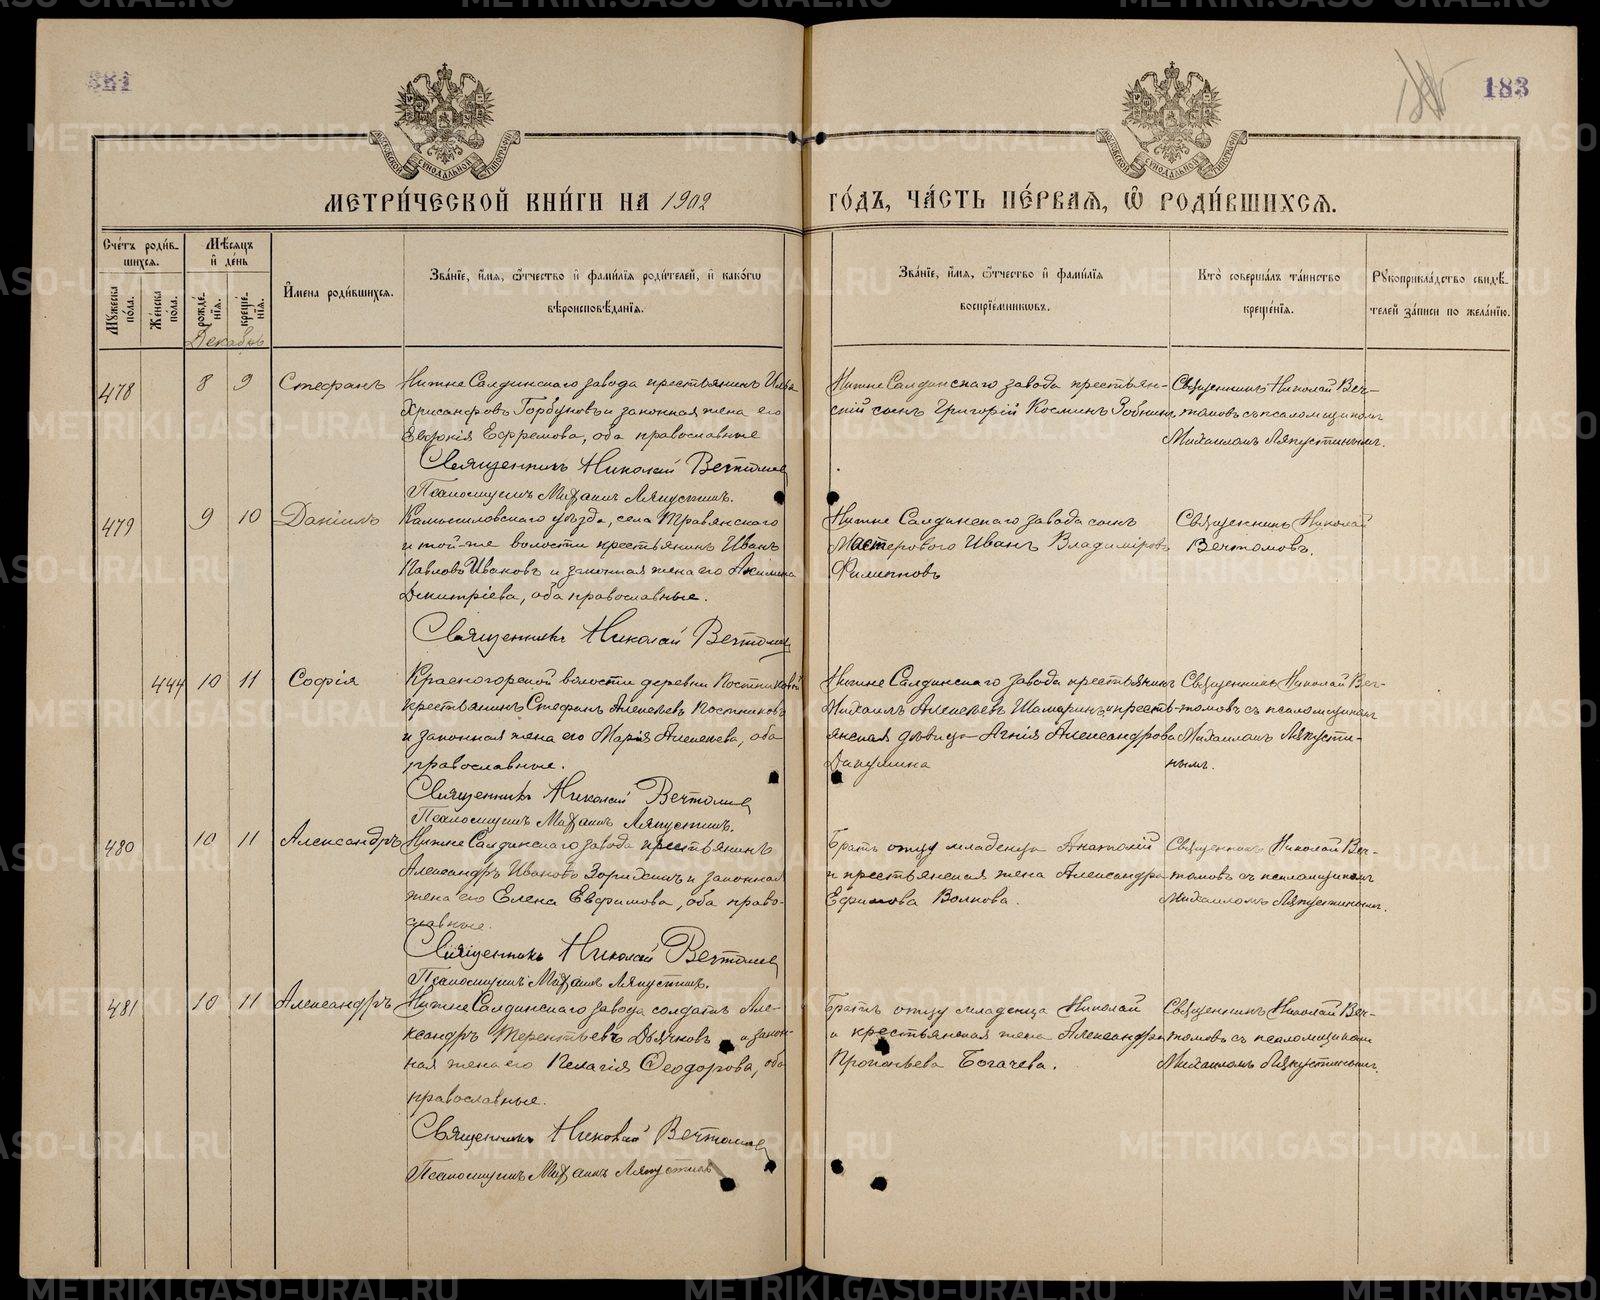 381
183
МЕТРИ́ЧЕСКОЙ КНИ́ГИ НА 1902
ГО́ДЪ, ЧА́СТЬ ПЕ́РВАЯ, Ѿ РОДИ́ВШИХСЯ.
Сче́тъ роди́в-
шихся.
Мѣ́сяцъ
и҆ де́нь
И҆мена роди́вшихся.
Зва́нїе, и҆́мя, ѻ҆́тчество и҆ фами́лїя роди́телей, и҆ како́гѡ
вѣроисповѣ́данїя.
Зва́нїе, и҆́мя, ѻ҆́тчество и҆ фами́лїя
воспрїе́мникѡвъ.
Кто̀ соверша́лъ та́инство
креще́нїя.
Рꙋкоприкла́дство свидѣ́-
телей за́писи по жела́нїю.
Мꙋ́жеска по́ла.
Же́нска по́ла.
рожде́нїя.
креще́нїя.
Декабрь
478 8 9 Стефанъ
Нижне Салдинскаго завода крестьянинъ Илья
Хрисанфовъ Горбуновъ и законная жена его
Евдокія Ефремова, оба православные
Священникъ Николай Вечтомов
Псаломщикъ Михаилъ Ляпустинъ.
Нижне Салдинскаго завода крестьян-
скій сынъ Григорій Космин Зобнинъ
Священникъ Николай Веч-
томовъ съ псаломщикомъ
Михаиломъ Ляпустинымъ.
479 9 10 Даніилъ
Камышловскаго уѣзда, села Травянскаго
и той-же волости крестьянинъ Иванъ
Павловъ Иваковъ и законная жена его Акилина
Димитріева, оба православные.
Священникъ Николай Вечтомов
Нижне Салдинскаго завода сынъ
Мастероваго Иванъ Владиміровъ
Филипповъ
Священникъ Николай
Вечтомовъ.
444 10 11 Софія
Красногорской волости деревни Постниковой
крестьянинъ Стефанъ Алексѣевъ Постниковъ
и законная жена его Марія Алексѣева, оба
православные.
Священникъ Николай Вечтомов
Псаломщикъ Михаилъ Ляпустинъ.
Нижне Салдинскаго завода крестьянинъ
Михаилъ Алексѣевъ Шамаринъ и кресть-
янская дѣвица Агнія Александрова
Священникъ Николай Веч-
томовъ съ псаломщикомъ
Михаиломъ Ляпусти-
нымъ.
480 10 11 Александръ
Нижне Салдинскаго завода крестьянинъ
Александръ Ивановъ Зорихинъ и законная
жена его Елена Евфимова, оба право-
славные.
Священникъ Николай Вечтомов
Псаломщикъ Михаилъ Ляпустинъ.
Братъ отцу младенца Анатолій
и крестьянская жена Александра
Ефимова Волкова.
Священникъ Николай Веч-
томовъ съ псаломщикомъ
Михаиломъ Ляпустинымъ.
481 10 11 Александръ
Нижне Салдинскаго завода солдатъ Але-
ксандръ Терентьевъ Дьячковъ и закон-
ная жена его Пелагія Ѳеодорова, оба
православные.
Священникъ Николай Вечтомов
Псаломщикъ Михаилъ Ляпустинъ
Братъ отцу младенца Николай
и крестьянская жена Александра
Прокопьева Богачева.
Священникъ Николай Веч-
томовъ съ псаломщикомъ
Михаиломъ Ляпустинымъ.
METRIKI.GASO-URAL.RU